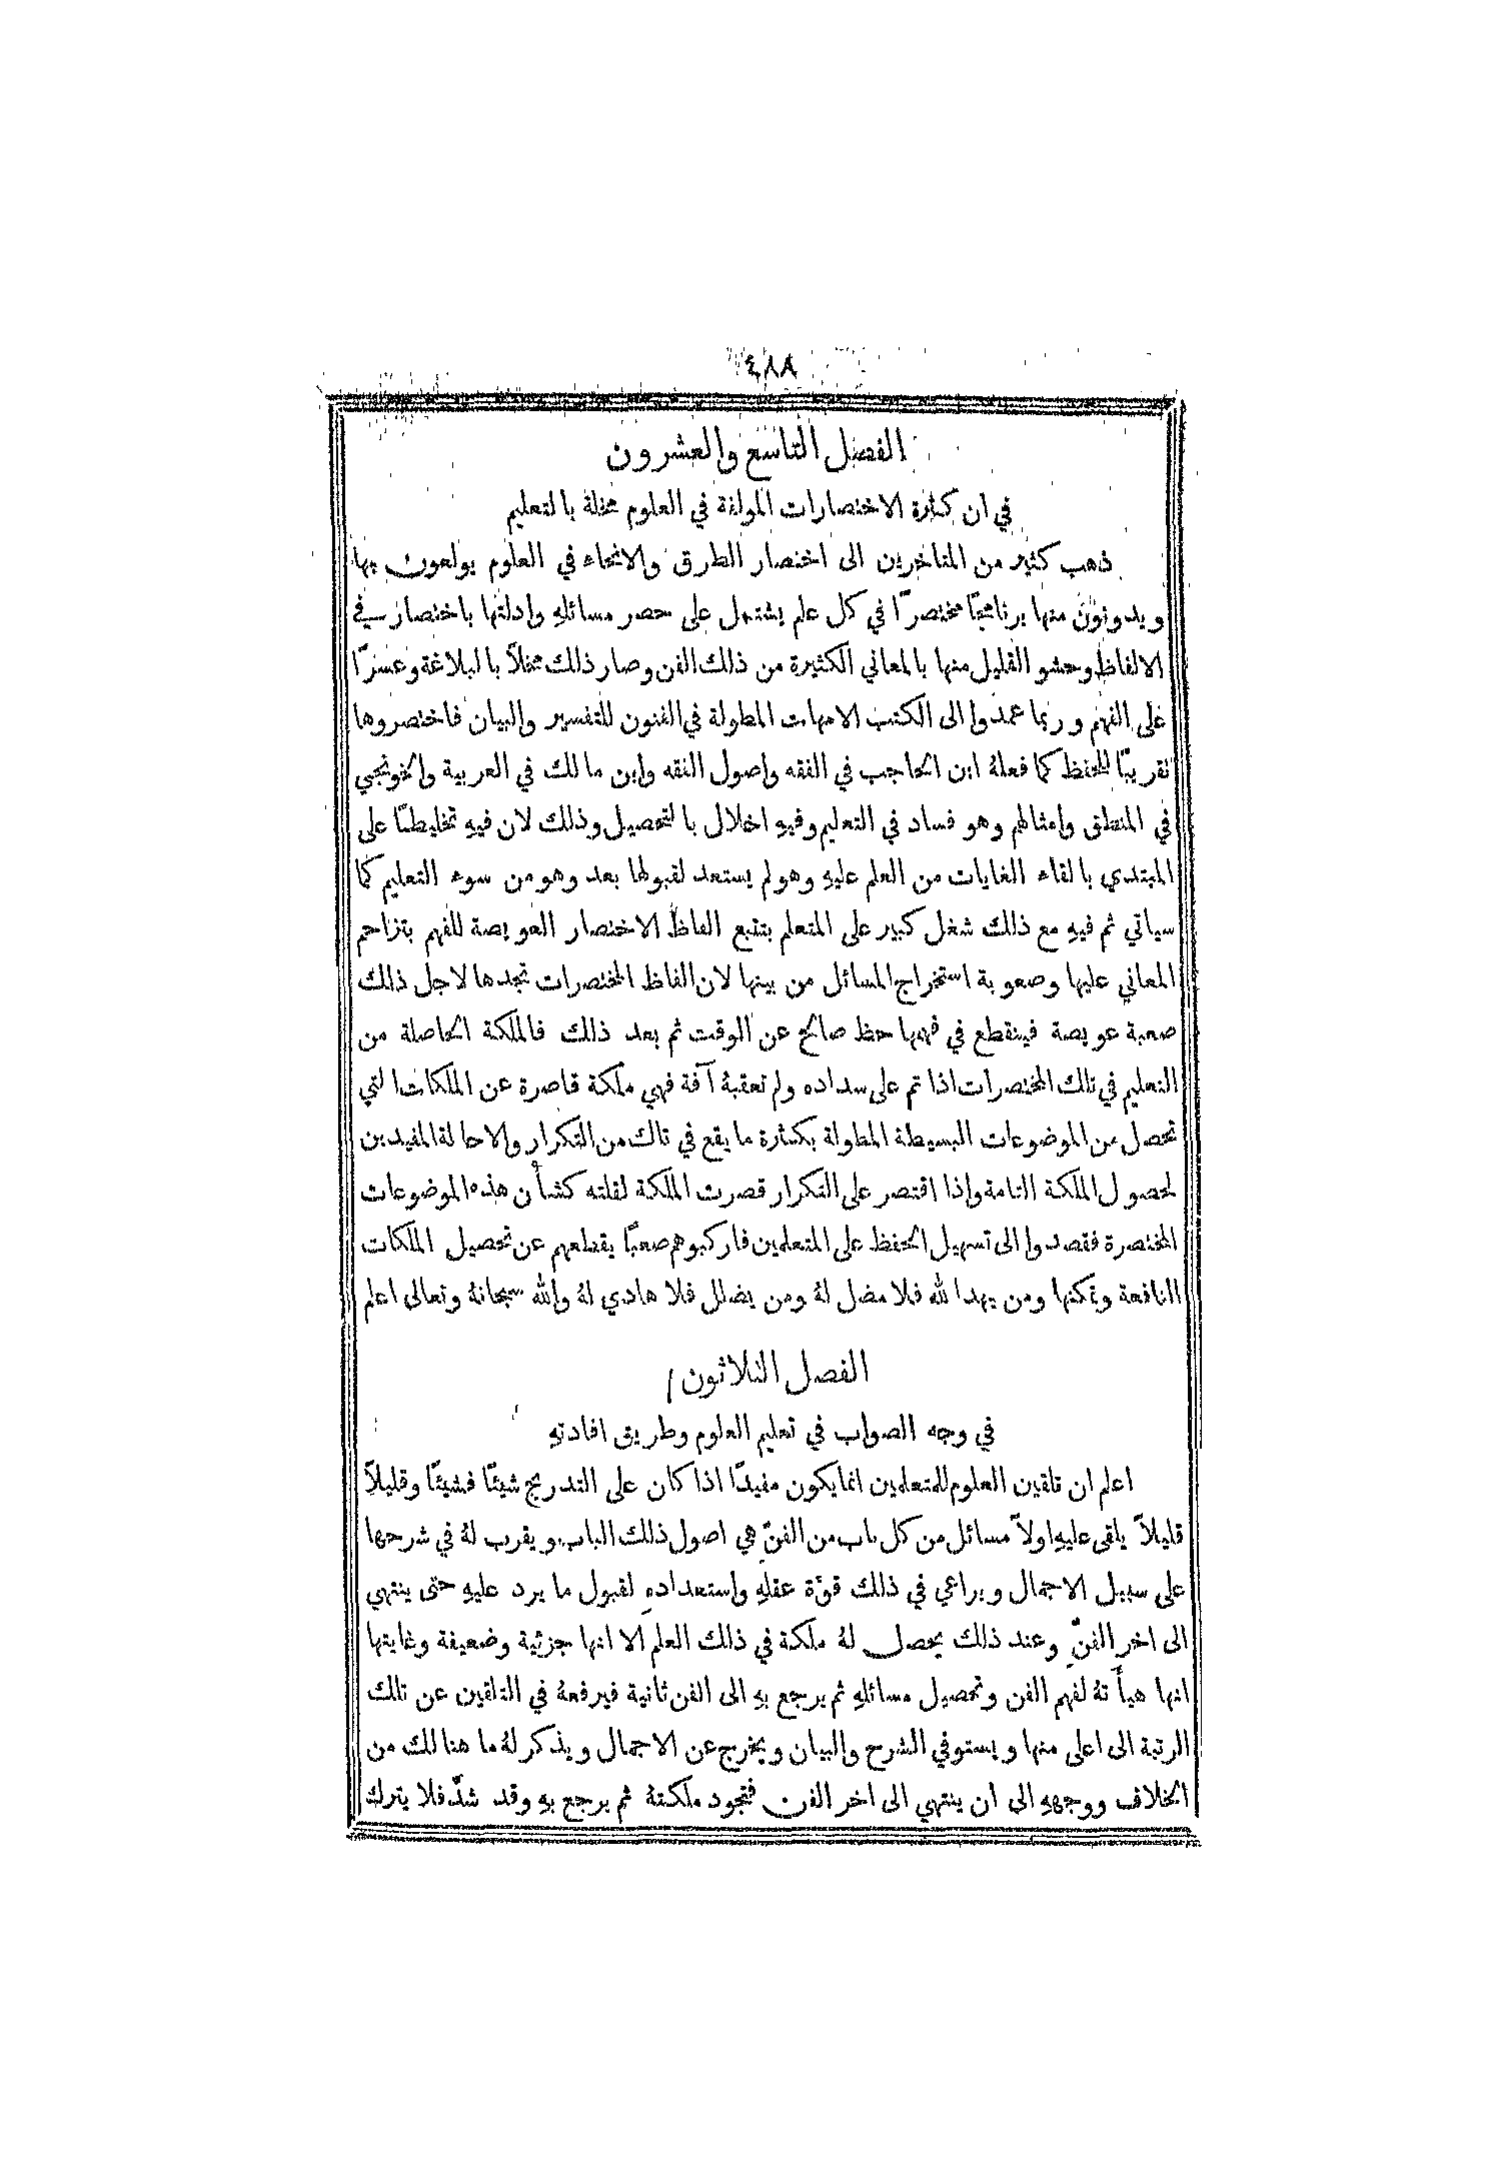 ٤٨٨
الفصل التاسع والعشرون
في ان كثرة الاختصارات المولفة في العلوم مخلة بالتعليم
ذهب كثير من المتاخرين الى اختصار الطرق والانحاء في العلوم يولعون بها
ويدونون منها برنامجًا مختصرًا في كل علم يشتمل على حصر مسائلهِ وادلتها باختصار في
الالفاظ وحشو القليل منها بالمعاني الكثيرة من ذلك الفن وصار ذلك مخلاً بالبلاغة وعسرًا
على الفهم وربما عمدوا الى الكتب الامهات المطولة في الفنون للتفسير والبيان فاختصروها
تقريبًا للحفظ كما فعلهُ ابن الحاجب في الفقه واصول الفقه وابن مالك في العربية والخونجي
في المنطق وامثالهم وهو فساد في التعليم وفيهِ اخلال بالتحصيل وذلك لان فيهِ تخليطًا على
المبتدي بالقاء الغايات من العلم عليهِ وهو لم يستعد لقبولها بعد وهو من سوء التعليم كما
سياتي ثم فيهِ مع ذلك شغل كبير على المتعلم بتتبع الفاظ الاختصار العويصة للفهم بتزاحم
المعاني عليها وصعوبة استخراج المسائل من بينها لان الفاظ المختصرات تجدها لاجل ذلك
صعبة عويصة فينقطع في فهمها حظ صالح عن الوقت ثم بعد ذلك فالملكة الحاصلة من
التعليم في تلك المختصرات اذا تم على سداده ولم تعقبهُ آفة فهي ملكة قاصرة عن الملكات التي
تحصل من الموضوعات البسيطة المطولة بكثرة ما يقع في تلك من التكرار والاحالة المفيدين
لحصول الملكة التامة واذا اقتصر على التكرار قصرت الملكة لقلته كشأن هذه الموضوعات
المختصرة فقصدوا الى تسهيل الحفظ على المتعلمين فاركبوهم صعبًا يقطعهم عن تحصيل الملكات
النافعة وتمكنها ومن يهد الله فلا مضل لهُ ومن يضلل فلا هادي لهُ والله سبحانهُ وتعالى اعلم
الفصل الثلاثون
في وجه الصواب في تعليم العلوم وطريق افادتهِ
اعلم ان تلقين العلوم للمتعلمين انما يكون مفيدًا اذا كان على التدريج شيئًا فشيئًا وقليلاً
قليلاً يلقى عليهِ اولاً مسائل من كل باب من الفنّ هي اصول ذلك الباب ويقرب لهُ في شرحها
على سبيل الاجمال ويراعي في ذلك قوّة عقلهِ واستعدادهِ لقبول ما يرد عليهِ حتى ينتهي
الى اخر الفنّ وعند ذلك يحصل لهُ ملكة في ذلك العلم الا انها جزئية وضعيفة وغايتها
انها هيأتهُ لفهم الفن وتحصيل مسائلهِ ثم يرجع بهِ الى الفن ثانية فيرفعهُ في التلقين عن تلك
الرتبة الى اعلى منها ويستوفي الشرح والبيان ويخرج عن الاجمال ويذكر لهُ ما هنالك من
الخلاف ووجههِ الى ان ينتهي الى اخر الفن فتجود ملكتهُ ثم يرجع بهِ وقد شدّ فلا يترك